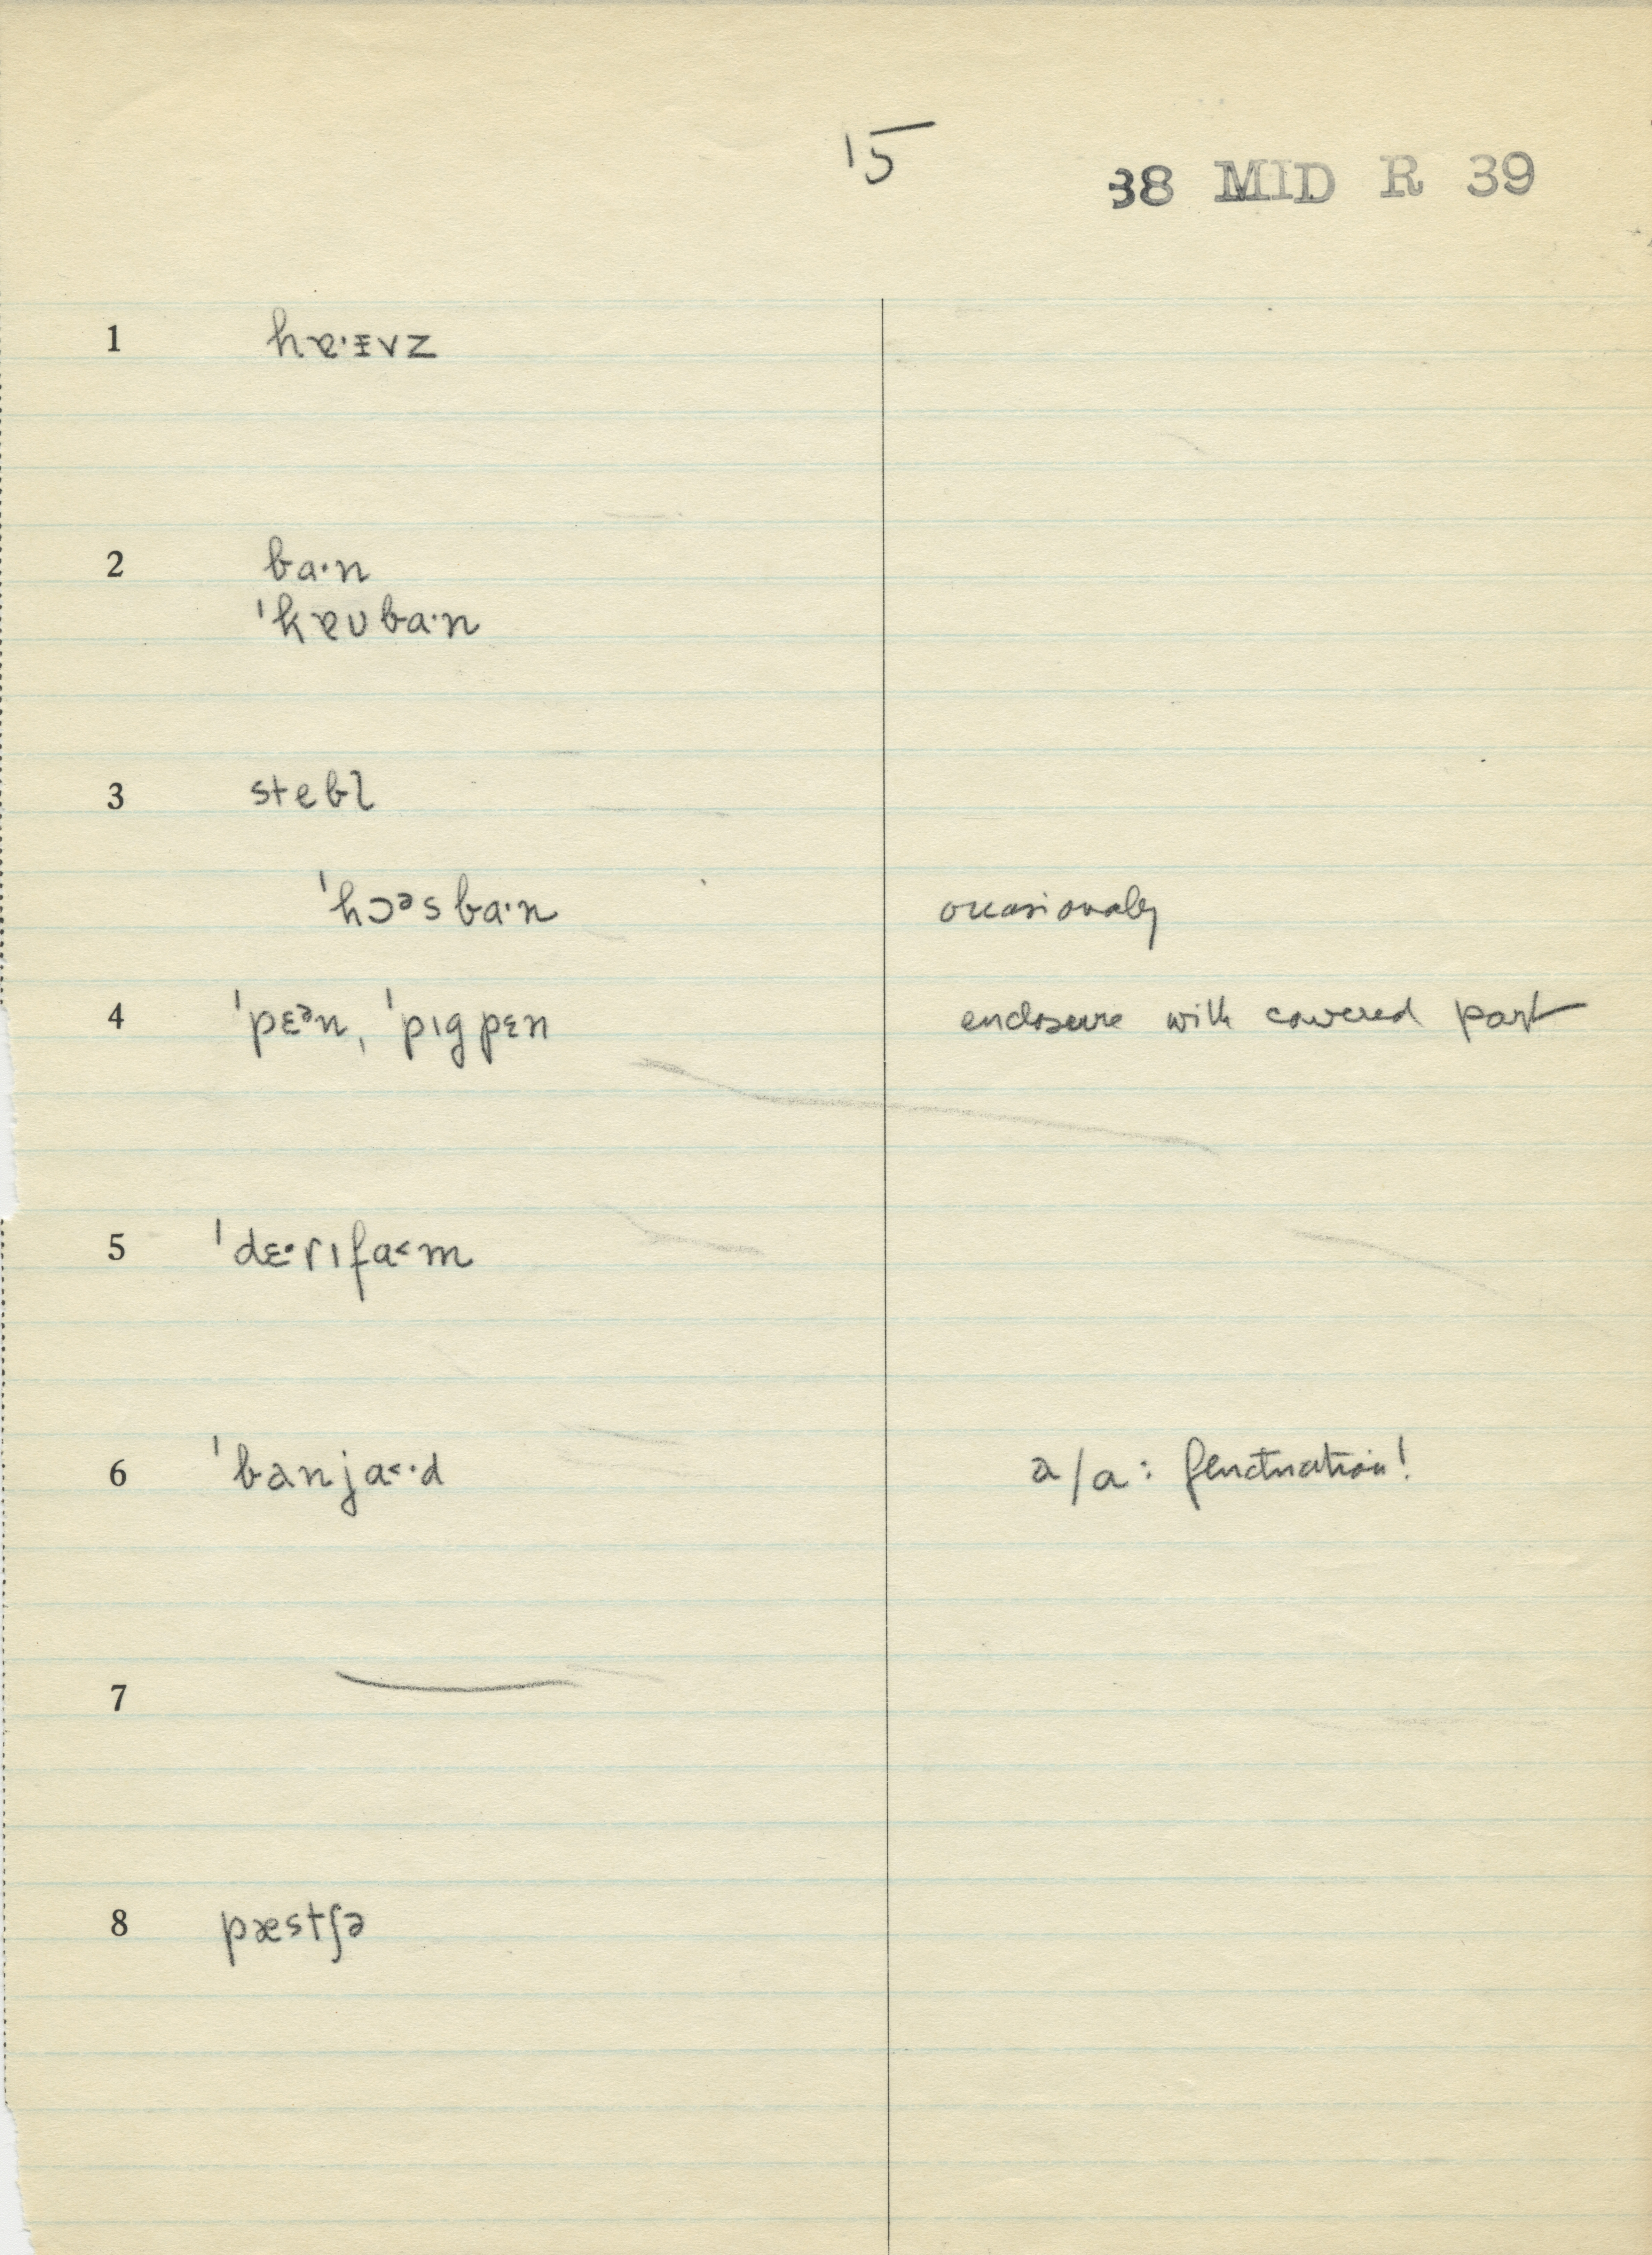 15
38 MID R 39
1 hɐ·ᵻvz
2 ba·n
ˈkɐʊba·n
3 stebl
ˈhɔᵊsba·n occasionally
4 ˈpɛᵊn, ˈpɪgpɛn enclosure with covered part
5 ˈdɛ·rɪfa˂m
6 ˈbanja˂·d a/ɑ: fluctuation!
7 —
8 pæstʃə